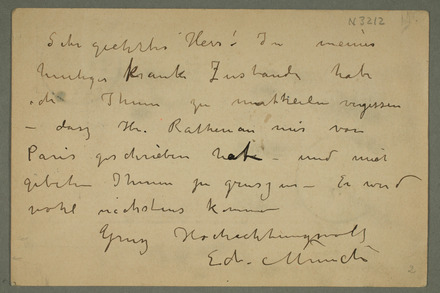 N 3212
Sehr geehrter Herr! In meiner
heutigen kranke Zustande habe
ich Ihnen zu mittheilen vergessen
– dasz Hr. Rathenau mir von
Paris geschrieben hat – und mich
gebeten Ihnen zu grüszen – Er wird
wohl nächstens kommen
Grusz Hochachtungsvoll
Edv. Munch
2